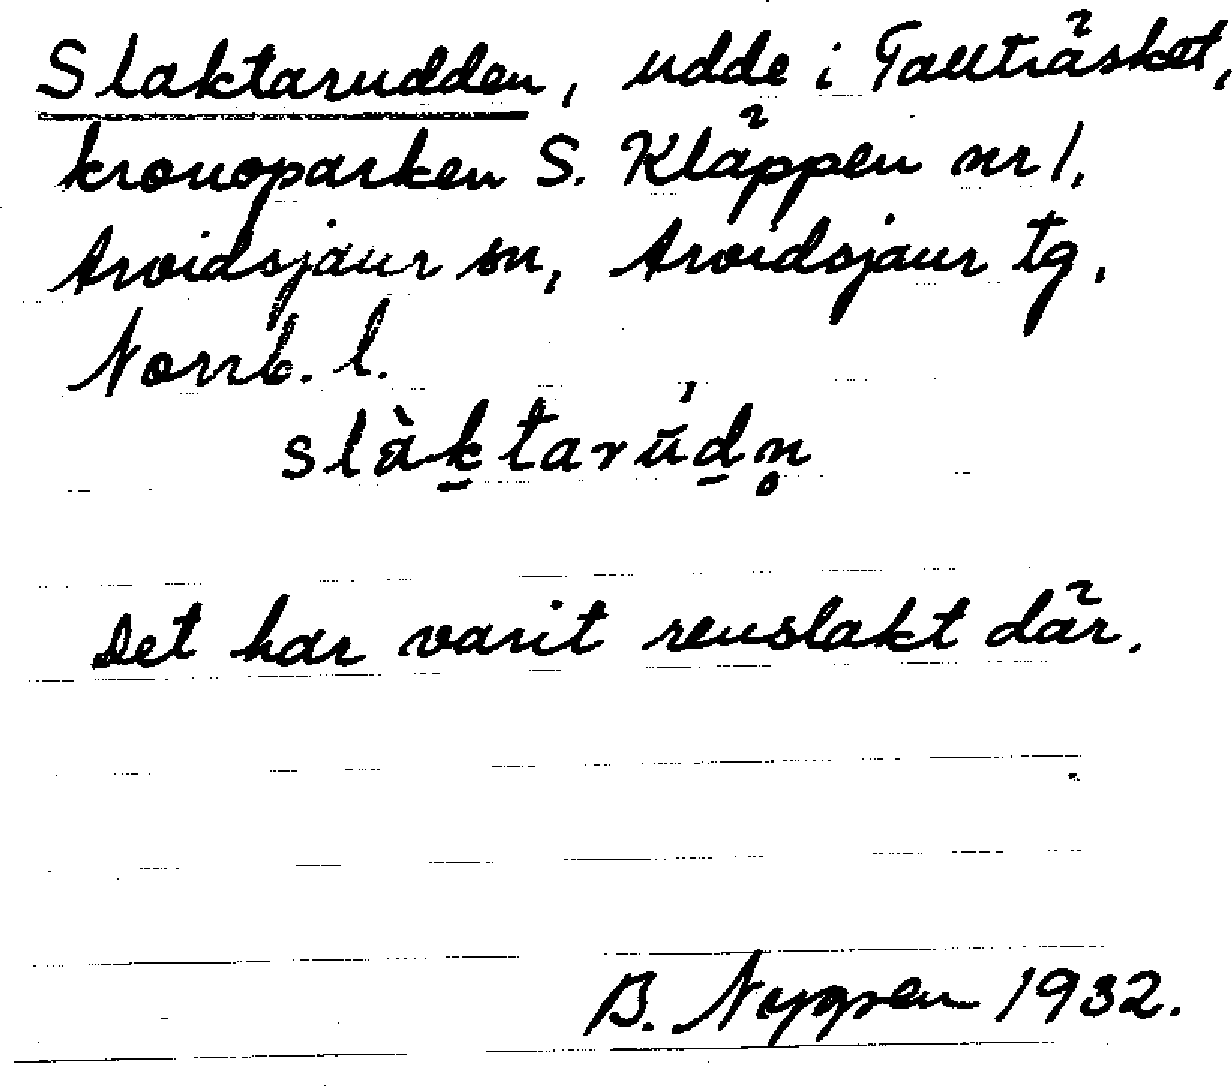 Slaktarudden, udde i Tallträsket,
kronoparken S. Kläppen nr 1,
Arvidsjaur sn, Arvidsjaur tg,
Norrb. l.
slàk̠taru̍d̠n̥
Det har varit renslakt där.
B. 1932.